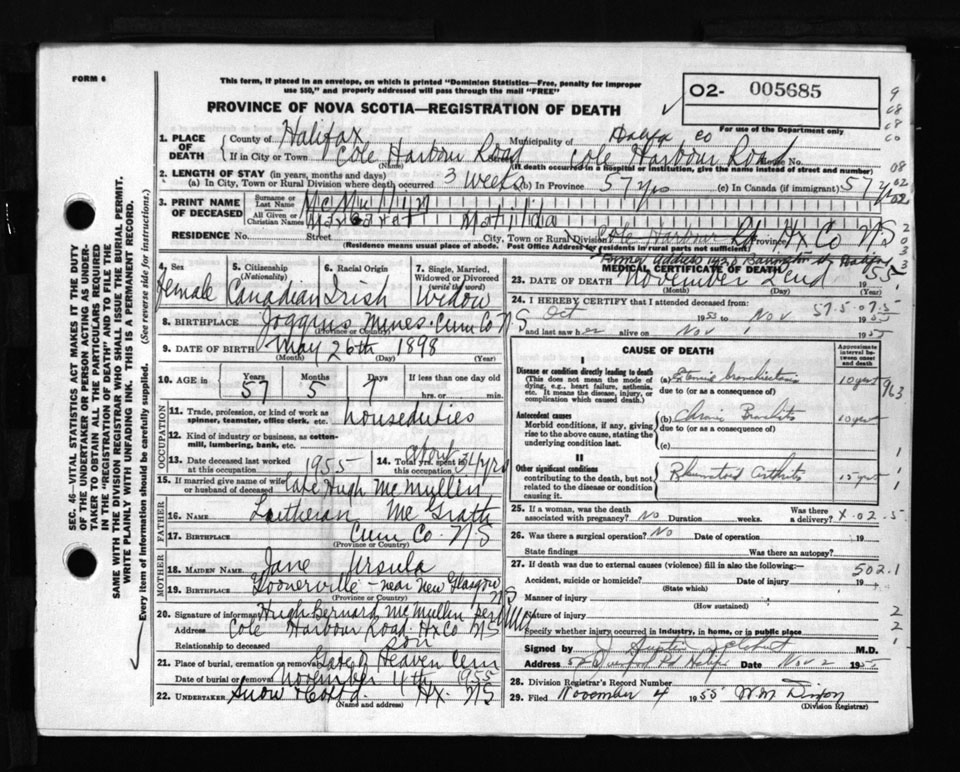 FORM 6
This form, if placed in an envelope, on which is printed "Dominion Statistics—Free, penalty for improper
use $50," and properly addressed will pass through the mail "FREE"
PROVINCE OF NOVA SCOTIA—REGISTRATION OF DEATH
O2- 005685
For use of the Department only
1. PLACE OF DEATH
County of Halifax Municipality of Halifax Co
If in City or Town Cole Harbour Road Cole Harbour Road House No.
(Name) (If death occurred in a hospital or institution, give the name instead of street and number)
2. LENGTH OF STAY (in years, months and days)
(a) In City, Town or Rural Division where death occurred 3 weeks (b) In Province 57 yrs (c) In Canada (if immigrant) 57 yrs
3. PRINT NAME OF DECEASED
Surname or Last Name McMullin
All Given or Christian Names Margaret Matilda
RESIDENCE No. Street City, Town or Rural Division Cole Harbour Rd Province Hx Co NS
(Residence means usual place of abode. Post Office Address for residents in rural parts not sufficient)
Former address
4. Sex Female
5. Citizenship (Nationality) Canadian
6. Racial Origin Irish
7. Single, Married, Widowed or Divorced (write the word) Widow
8. BIRTHPLACE Joggins Mines Cum Co NS
(Province or Country)
9. DATE OF BIRTH May 26th 1898
(Month) (Day) (Year)
10. AGE in Years 57 Months 5 Days 7 If less than one day old
hrs. or min.
OCCUPATION
11. Trade, profession, or kind of work as spinner, teamster, office clerk, etc. housedutIes
12. Kind of industry or business, as cotton-mill, lumbering, bank, etc.
13. Date deceased last worked at this occupation 1955
14. Total yrs. spent in this occupation about 36 yrs
15. If married give name of wife or husband of deceased late Hugh McMullin
FATHER
16. NAME McGrath
17. BIRTHPLACE Cum Co. NS
(Province or Country)
MOTHER
18. MAIDEN NAME Jane Ursula
19. BIRTHPLACE near New Glasgow NS
(Province or Country)
20. Signature of informant Hugh Bernard McMullin
Address Cole Harbour Road Hx Co NS
Relationship to deceased son
21. Place of burial, cremation or removal Gate of Heaven Cem
Date of burial or removal November 4th 1955
22. UNDERTAKER Snow & Co Ltd. Hx. NS
(Name and address)
MEDICAL CERTIFICATE OF DEATH
23. DATE OF DEATH November 2nd 1955
(Month) (Day)
24. I HEREBY CERTIFY that I attended deceased from:
Oct 1955 to Nov 1955
and last saw her alive on Nov 1 1955
CAUSE OF DEATH
Approximate interval between onset and death
I
Disease or condition directly leading to death
(This does not mean the mode of dying, e.g., heart failure, asthenia, etc. It means the disease, injury, or complication which caused death.)
(a) bronchiectasis 10 years
due to (or as a consequence of)
Antecedent causes
Morbid conditions, if any, giving rise to the above cause, stating the underlying condition last.
(b) Chronic Bronchitis 10 years
due to (or as a consequence of)
(c)
II
Other significant conditions
contributing to the death, but not related to the disease or condition causing it.
Rheumatoid Arthritis years
25. If a woman, was the death associated with pregnancy? No Duration weeks. Was there a delivery?
26. Was there a surgical operation? No Date of operation 19
State findings Was there an autopsy?
27. If death was due to external causes (violence) fill in also the following:— 502.1
Accident, suicide or homicide? Date of injury 19
(State which)
Manner of injury
(How sustained)
Nature of injury
Specify whether injury occurred in industry, in home, or in public place
Signed by M.D.
Address Date Nov 2 1955
28. Division Registrar's Record Number
29. Filed November 4 1955 W.M. Dixon
(Division Registrar)
SEC. 46—VITAL STATISTICS ACT MAKES IT THE DUTY
OF THE UNDERTAKER OR PERSON ACTING AS UNDER-
TAKER TO OBTAIN ALL THE PARTICULARS REQUIRED
IN THE "REGISTRATION OF DEATH" AND TO FILE THE
SAME WITH THE DIVISION REGISTRAR WHO SHALL ISSUE THE BURIAL PERMIT.
WRITE PLAINLY WITH UNFADING INK. THIS IS A PERMANENT RECORD.
Every item of information should be carefully supplied. (See reverse side for instructions.)